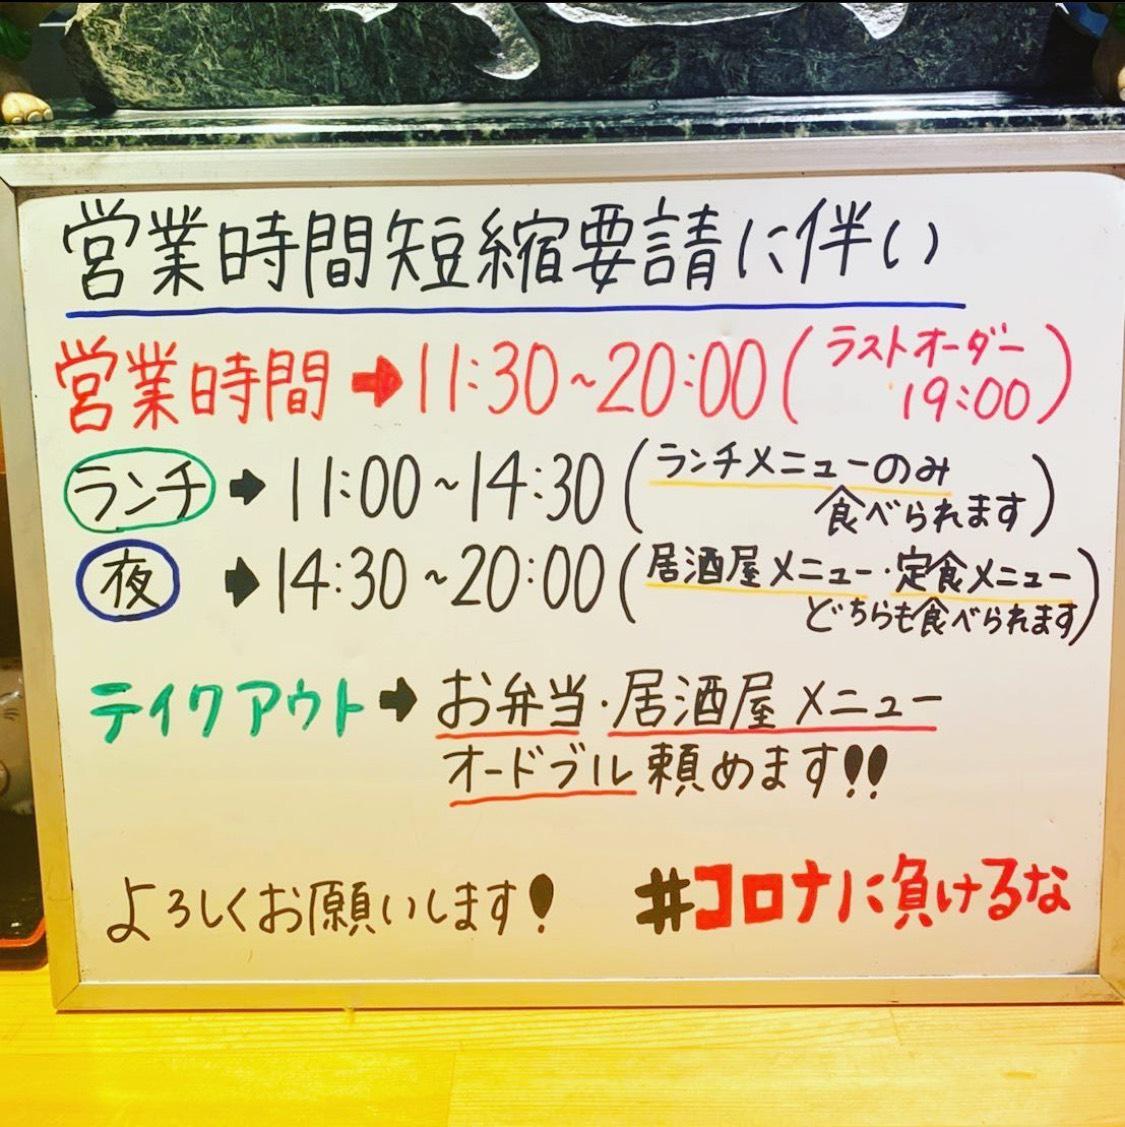 営業時間短縮要請に伴い
営業時間➡11:30~20:00(ラストオーダー
19:00)
ランチ➡11:00~14:30(ランチメニューのみ
食べられます)
夜➡14:30~20:00(居酒屋メニュー・定食メニュー
どちらも食べられます)
テイクアウト➡お弁当・居酒屋メニュー
オードブル頼めます!!
よろしくお願いします!
#コロナに負けるな